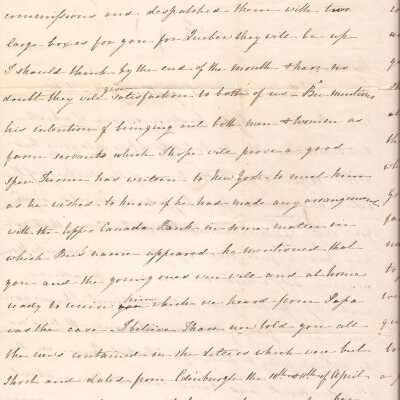 commissions and despatched them with two
large boxes for you for Quebec they will be up
I should think by the end of the month & have no
doubt they will give satisfaction to both of us - Bn. mentions
his intention of bringing out both men & women as
farm servants which I hope will prove a good
has written to New York to meet him
as he wished to know if he had made any arrangement
with the Upper Canada Bank in some matter in
which Bn's name appeared. he mentioned that
you and the young ones were well and at home
ready to receive him which we heard from Papa
was the case - I believe I have now told you all
the news contained in the letters which were but
short and dated from Edinburgh the 10th & 11th of April